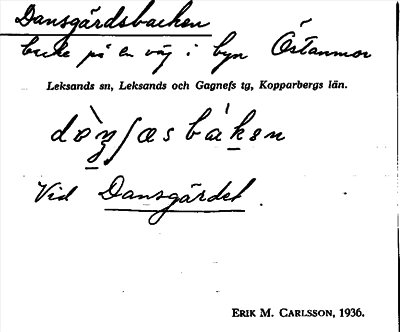 Dansgårdsbacken
backe på en väg i byn Östanmor
Leksands sn, Leksands och Gagnefs tg, Kopparbergs län.
Vid Dansgärdet.
ERIK M. CARLSSON, 1936.